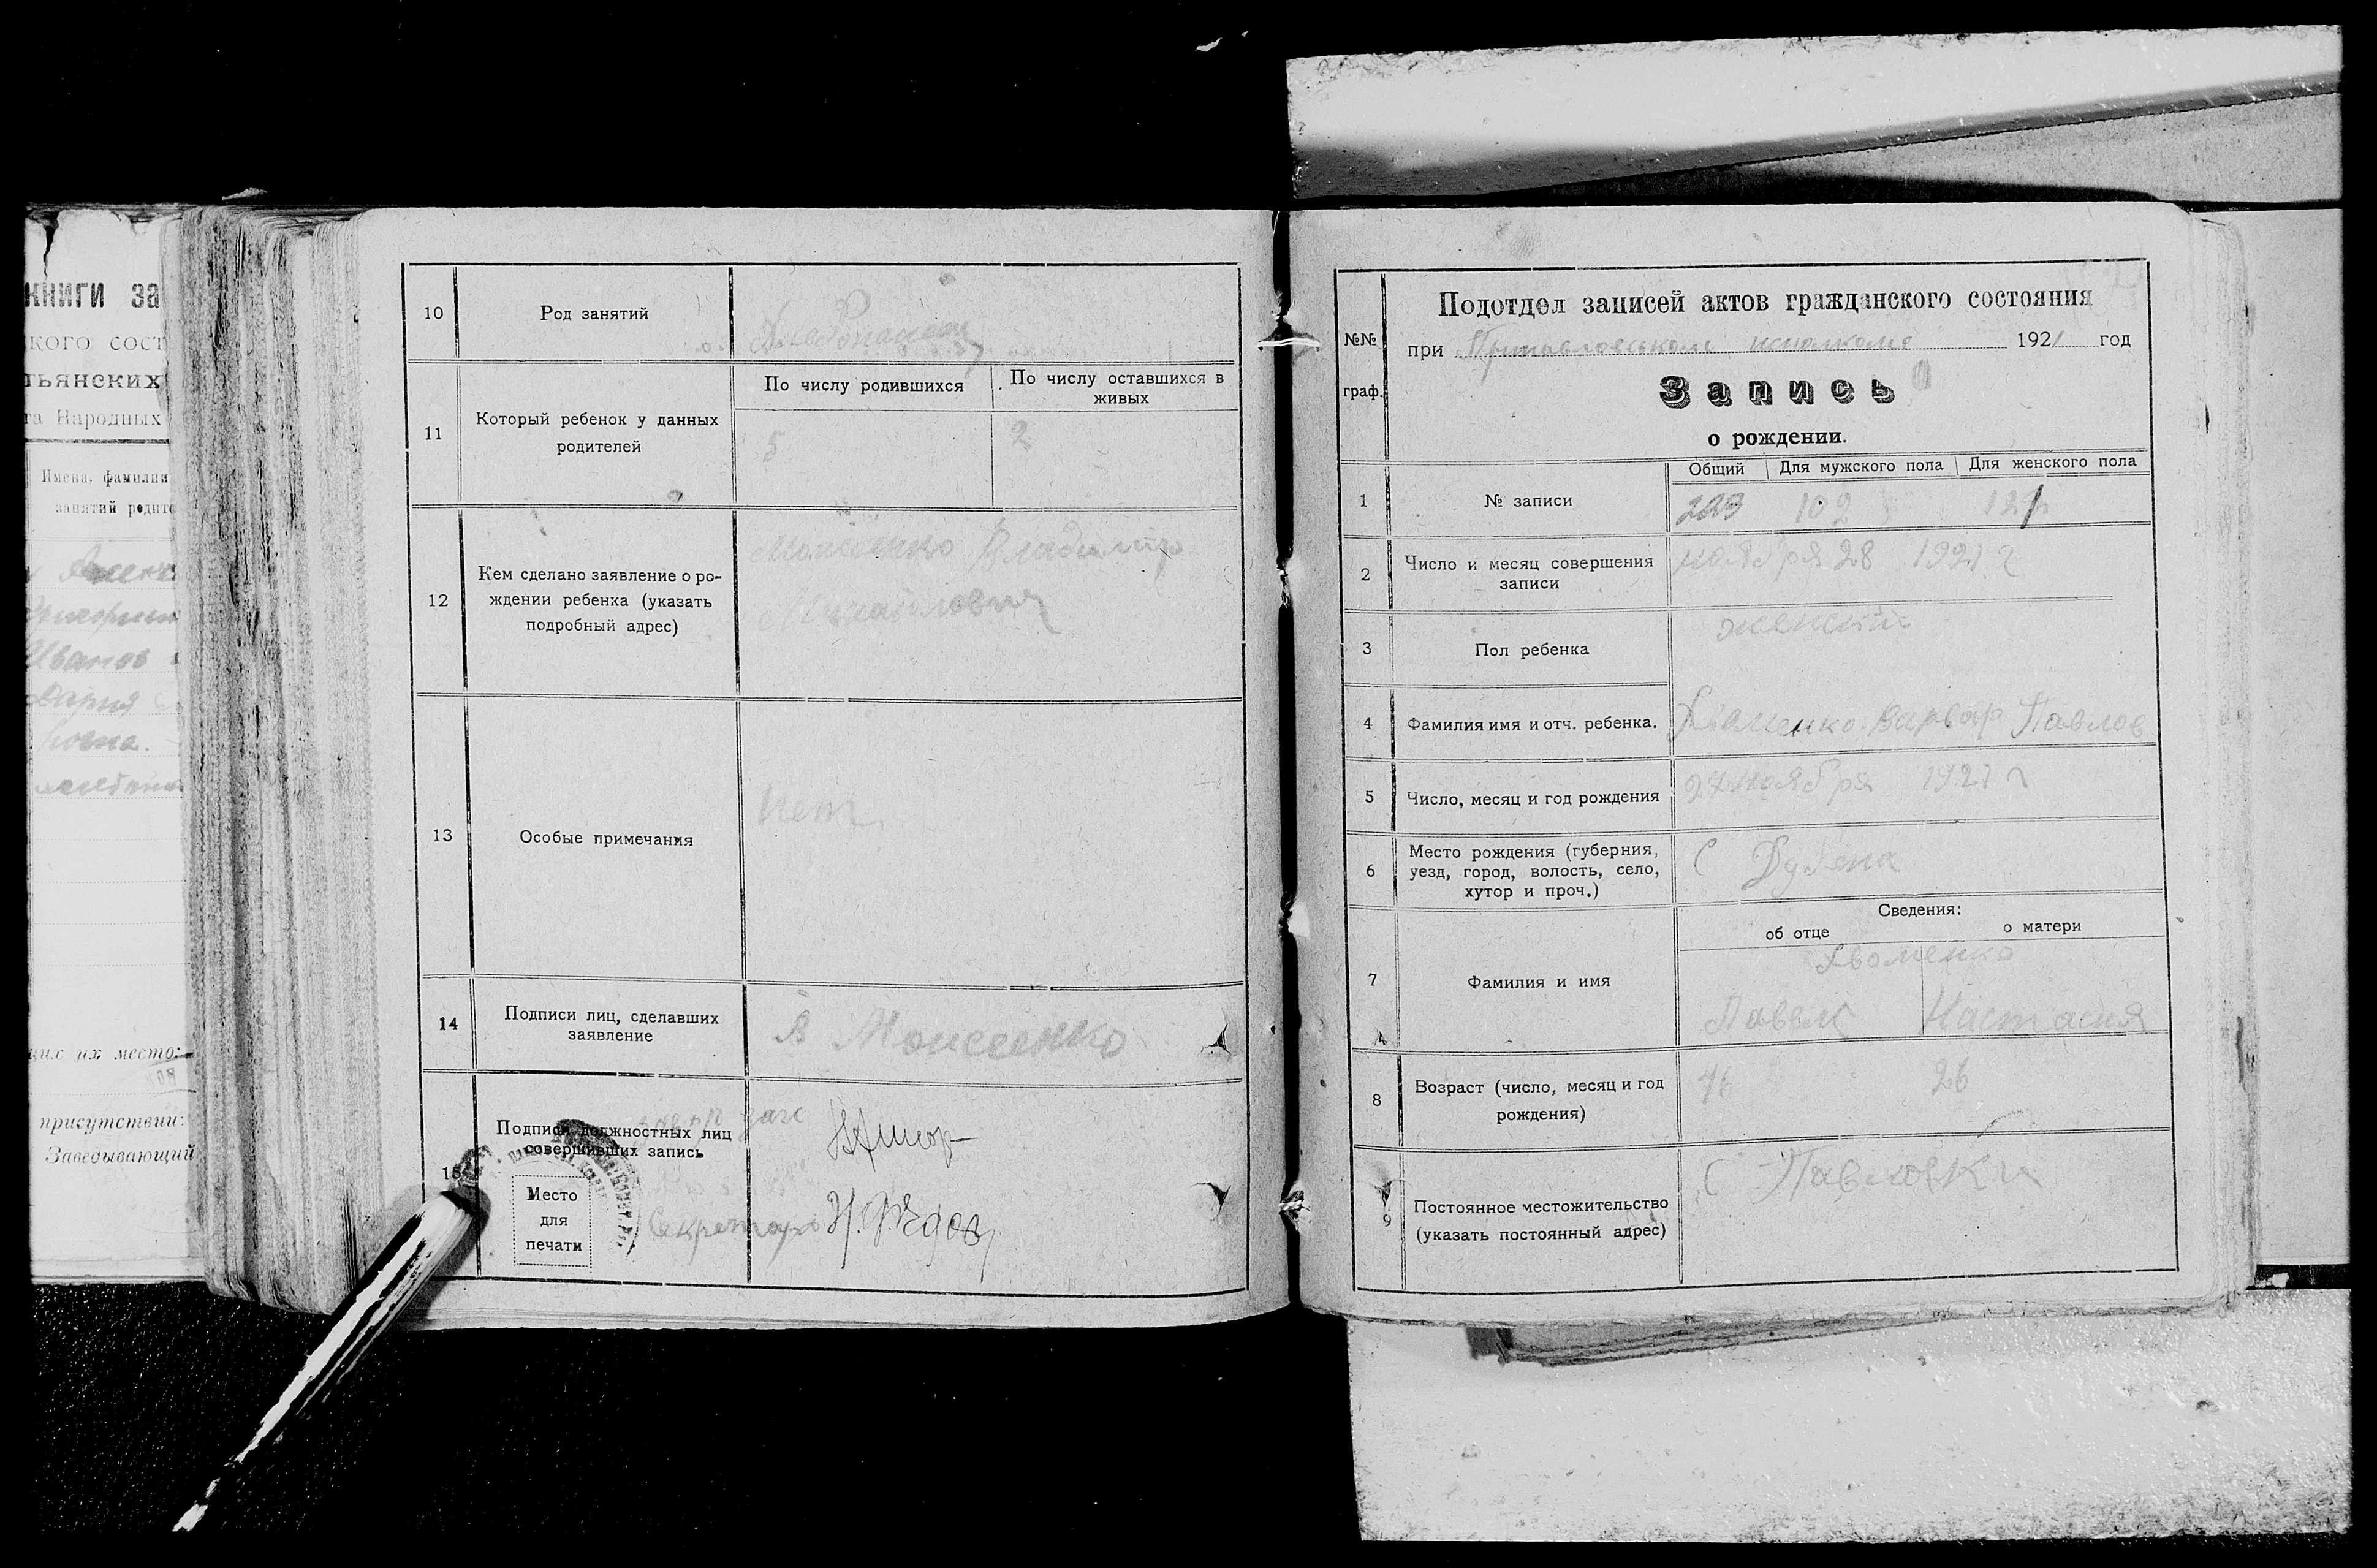 книги за
кого сост
тьянских
та Народных
Имена, фамилии
занятий родите
Иванов
Дария
щих их место:
присутствии:
Заведывающий
10
Род занятий
11
Который ребенок у данных
родителей
По числу родившихся
По числу оставшихся в
живых
5
2
12
Кем сделано заявление о ро-
ждении ребенка (указать
подробный адрес)
Моисеенко Владимир
Михайлович
13
Особые примечания
Нет
14
Подписи лиц, сделавших
заявление
В Моисеенко
15
Подписи должностных лиц
совершивших запись
Место
для
печати
загс
Секретарь
№№
граф.
Подотдел записей актов гражданского состояния
при исполкоме 1921 год
Запись
о рождении.
Общий
Для мужского пола
Для женского пола
1
№ записи
223
102
121
2
Число и месяц совершения
записи
ноября 28 1921 г
3
Пол ребенка
женский
4
Фамилия имя и отч. ребенка.
Варвар Павлов
5
Число, месяц и год рождения
27 ноября 1921 г
6
Место рождения (губерния,
уезд, город, волость, село,
хутор и проч.)
С
7
Фамилия и имя
Сведения:
об отце
о матери
Хоменко
Павел
Настасия
8
Возраст (число, месяц и год
рождения)
26
9
Постоянное местожительство
(указать постоянный адрес)
С Павловки